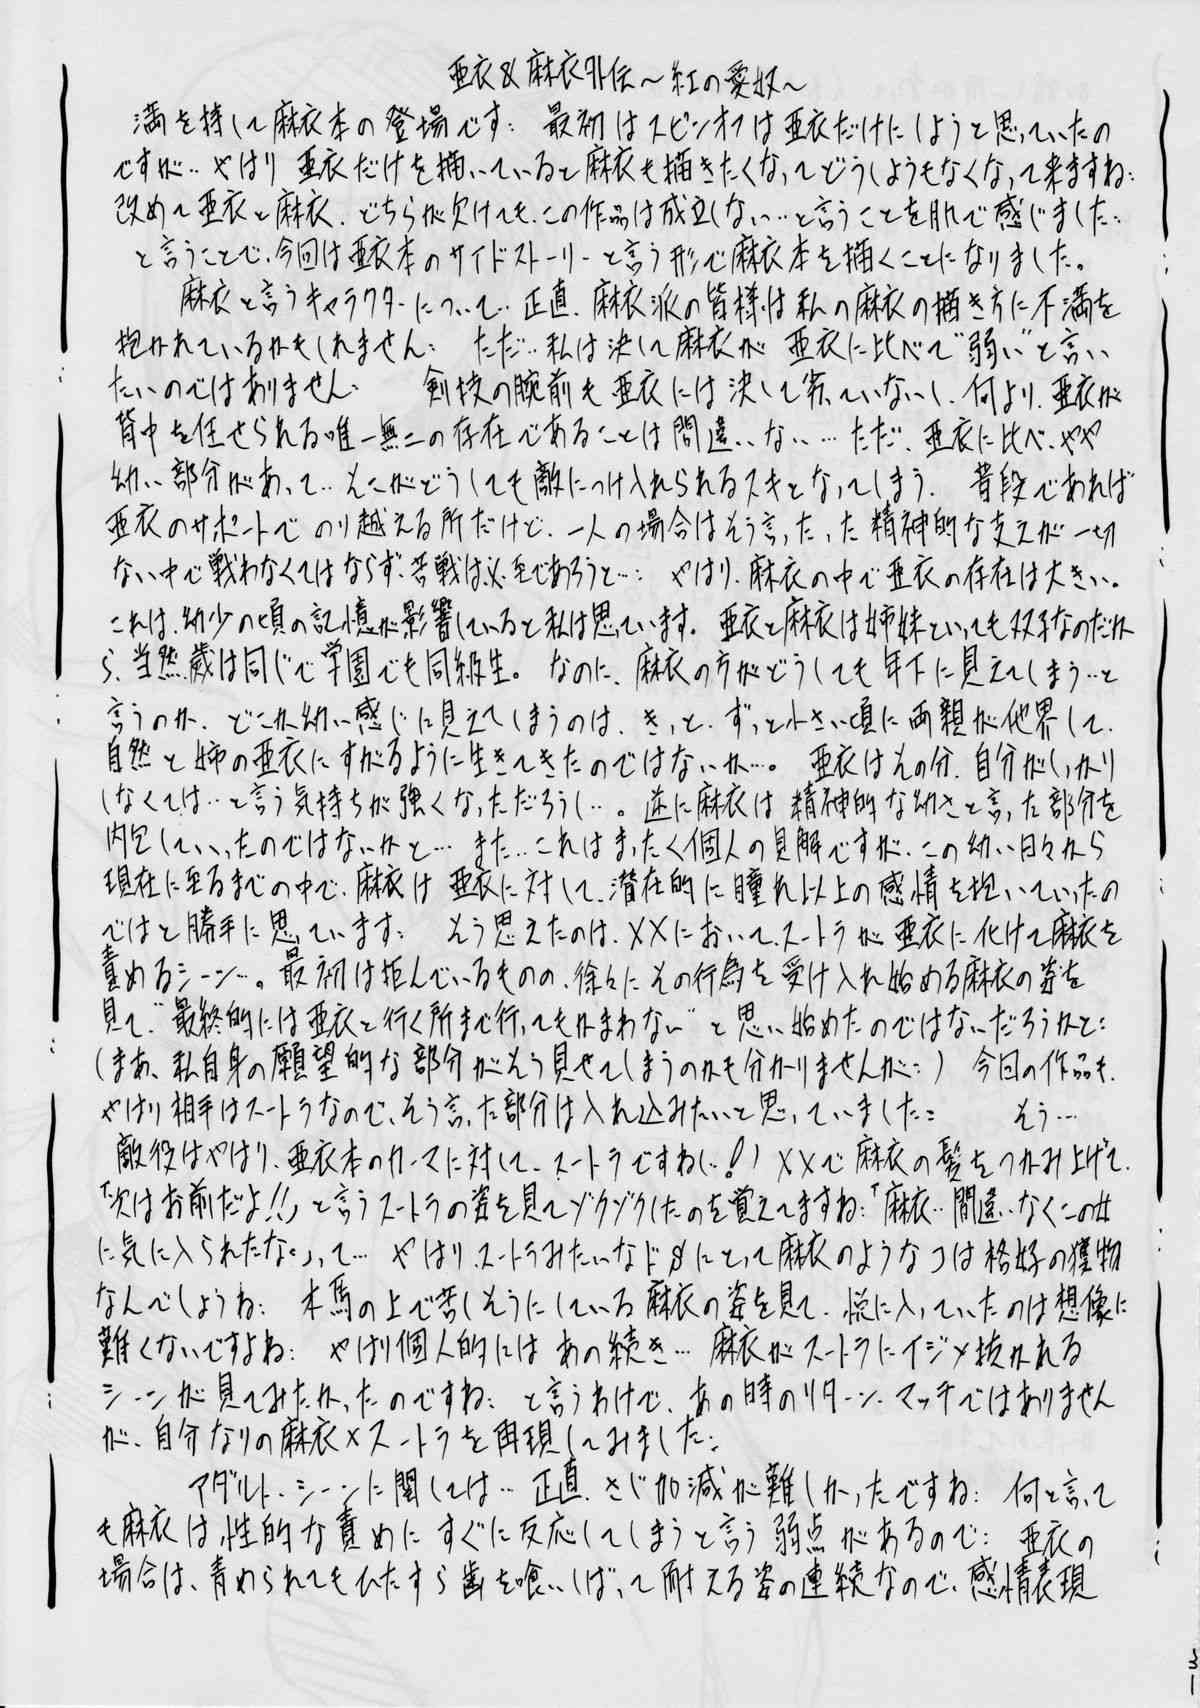 亜衣&麻衣外伝～紅の愛奴～
満を持して麻衣本の登場です: 最初はスピンオフは亜衣だけにしようと思っていたの
ですが‥やはり 亜衣だけを描いていると麻衣も描きたくなってどうしようもなくなって来ますね:
改めて亜衣と麻衣、どちらが欠けても、この作品は成立しない‥と言うことを肌で感じました:
と言うことで、今回は亜衣本のサイドストーリーと言う形で麻衣本を描くことになりました。
麻衣と言うキャラクターについて‥正直、麻衣派の皆様は私の麻衣の描き方に不満を
抱かれているかもしれません: ただ‥私は決して麻衣が 亜衣に比べて"弱い"と言い
たいのではありません: 剣技の腕前も亜衣には決して劣っていないし、何より、亜衣が
背中を任せられる唯一無二の存在であることは間違いない…ただ、亜衣に比べ、やや
幼い部分があって‥そこがどうしても敵につけ入れられるスキとなってしまう、 普段であれば
亜衣のサポートで のり越える所だけど、一人の場合はそう言った 精神的な支えが一切
ない中で戦わなくてはならず、苦戦は必至であろうと…: やはり、麻衣の中で亜衣の存在は大きい。
これは、幼少の頃の記憶が影響していると私は思っています。亜衣と麻衣は姉妹といっても双子なのだか
ら、当然歳は同じで学園でも同級生。 なのに、麻衣の方がどうしても年下に見えてしまう‥と
言うのか、どこか幼い感じに見えてしまうのは、きっと、ずっと小さい頃に両親が他界して、
自然と姉の亜衣にすがるように生きてきたのではないか…。 亜衣はその分、自分がしっかり
しなくては‥と言う気持ちが強くなっただろうし…。逆に麻衣は精神的な幼さと言った部分を
内包していったのではないかと… また‥これはまったく個人の見解ですが、この幼い日々から
現在に至るまでの中で、麻衣は亜衣に対して、潜在的に憧れ以上の感情を抱いていったの
ではと勝手に思っています: そう思えたのは、XXにおいて、スートラが亜衣に化けて麻衣を
責めるシーン…。最初は拒んでいるものの、徐々にその行為を受け入れ始める麻衣の姿を
見て、"最終的には亜衣と行く所まで行ってもかまわない"と思い始めたのではないだろうかと:
(まあ、私自身の願望的な部分がそう見せてしまうのかも分かりませんが:) 今回の作品も、
やはり相手はスートラなので、そう言った部分は入れ込みたいと思っていました: そう…
敵役はやはり、亜衣本のカーマに対して、スートラですねし‥!) XXで麻衣の髪をつかみ上げて、
「次はお前だよ!!」と言うスートラの姿を見てゾクゾクしたのを覚えてますね:「麻衣‥間違いなくこの女
に気に入られたな。」って… やはり、スートラみたいなドSにとって麻衣のようなコは格好の獲物
なんでしょうね: 木馬の上で苦しそうにしている麻衣の姿を見て、悦に入っていたのは想像に
難くないですよね: やはり個人的にはあの続き…麻衣がスートラにイジメ抜かれる
シーンが見てみたかったのですね: と言うわけで、あの時のリターン・マッチではありません
が、自分なりの麻衣×スートラを再現してみました:
アダルト・シーンに関しては‥正直、さじ加減が難しかったですね: 何と言って
も麻衣は、性的な責めにすぐに反応してしまうと言う弱点があるので: 亜衣の
場合は、責められてもひたすら歯を喰いしばって耐える姿の連続なので、感情表現